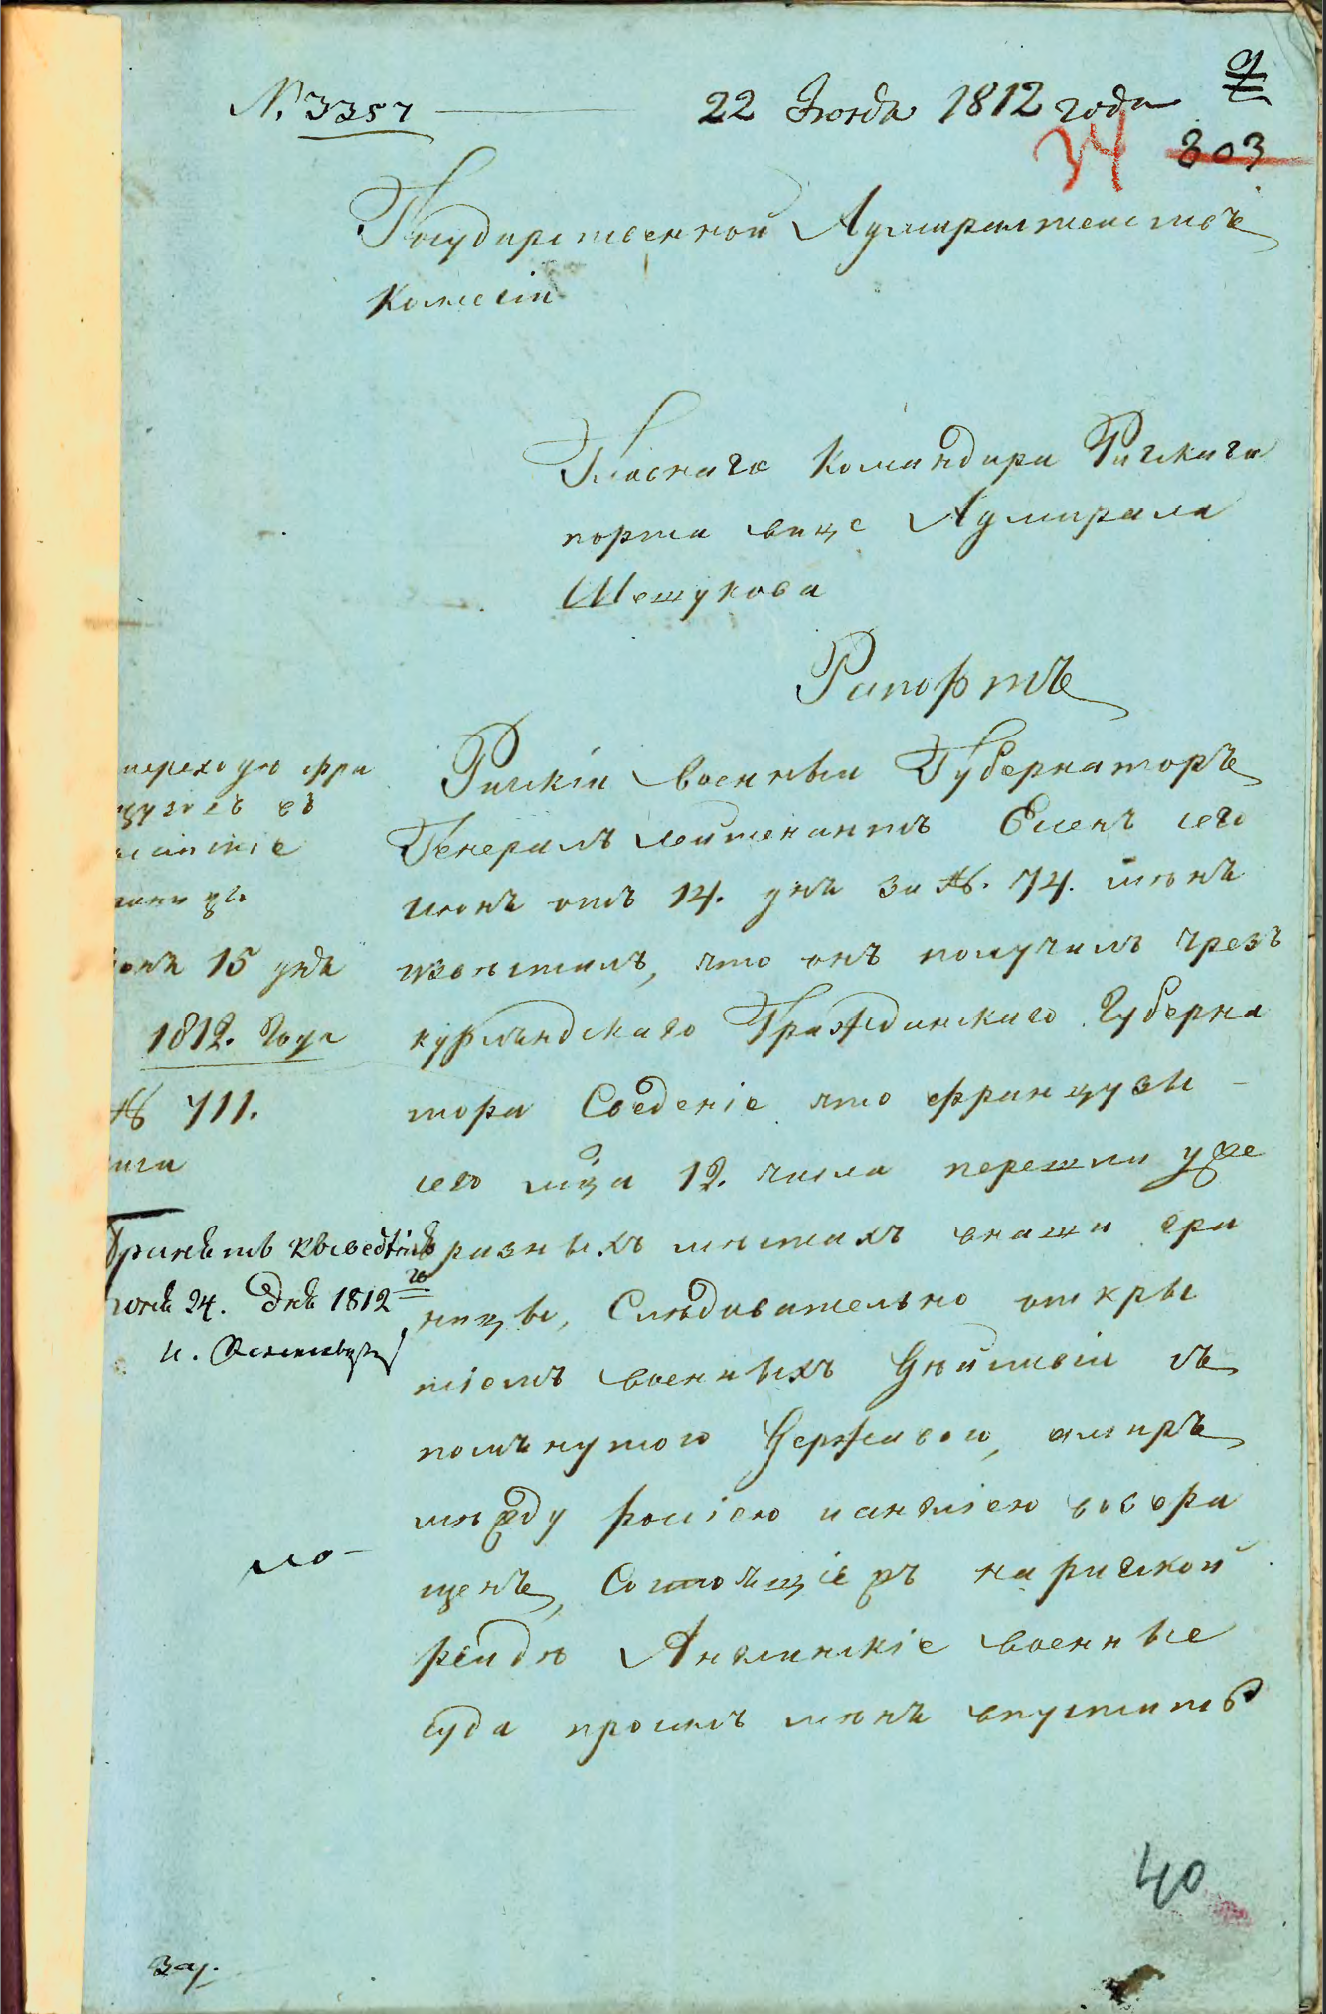 № 3357
22 Июня 1812 года
34 303
Государственной Адмиралтействъ
Колегіи
Главнаго Командира Рижскаго
порта вице Адмирала
Шешукова
Рапортъ
Рижскій военный Губернаторъ
Генералъ лейтенантъ Эсенъ сего
июня отъ 14. дня за №. 74. мнѣ
извѣстилъ, что онъ получилъ чрезъ
курляндскаго Гражданскаго Губерна
тора Сведеніе что французы
сего мца 12. числа перешли уже
вразныхъ мѣстахъ внаши гра
ницы, Слѣдовательно откры
тіемъ военныхъ дѣйствіи съ
помянутою державою, имиръ
между росіею и англіею возвра
щенъ, Состоящіе въ на рижской
рейдѣ Англинскіе военные
суда просилъ мѣня впустить
переходѣ фра
цузовъ въ
границы
юня 15 дня
1812. Года
№ 711.
Рига
Принять к сведенію
юня 24. дня 1812 го
мо-
40
За.